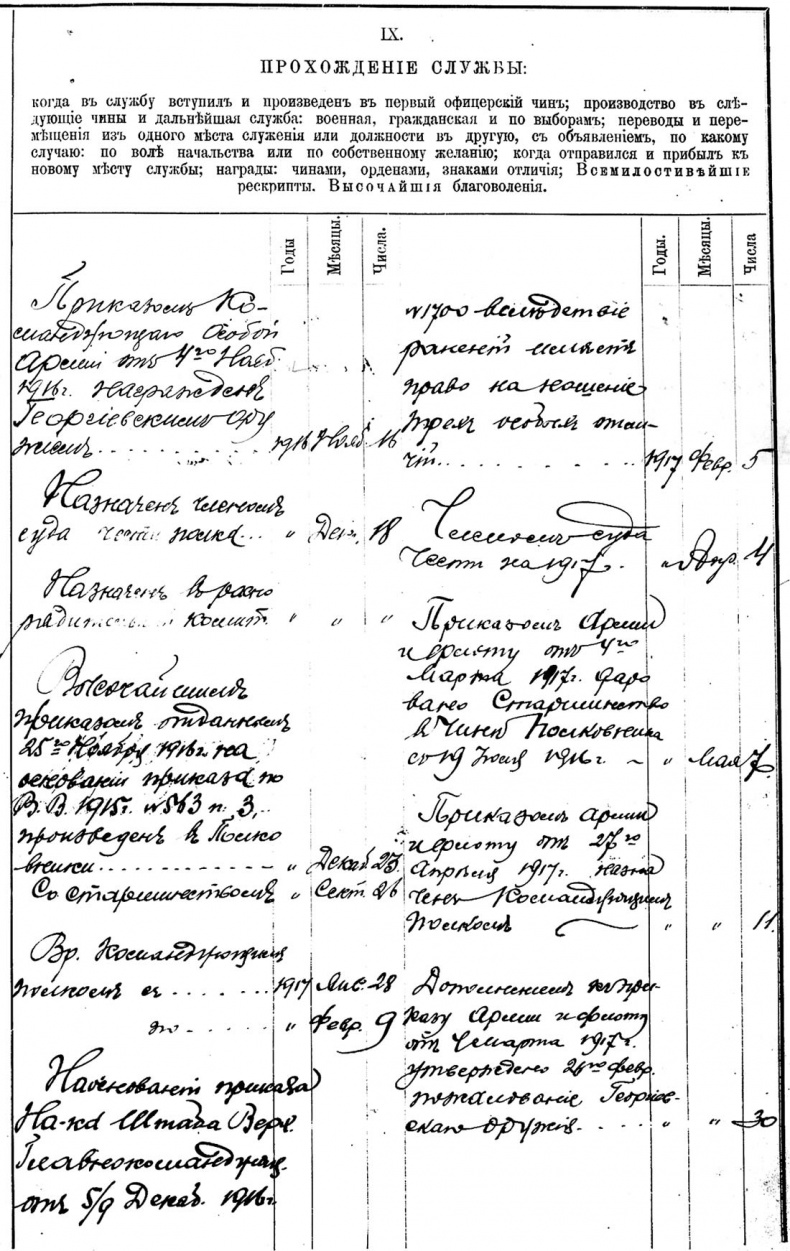 IX.
ПРОХОЖДЕНІЕ СЛУЖБЫ:
когда въ службу вступилъ и произведенъ въ первый офицерскій чинъ; производство въ слѣ-
дующіе чины и дальнѣйшая служба: военная, гражданская и по выборамъ; переводы и пере-
мѣщенія изъ одного мѣста служенія или должности въ другую, съ объявленіемъ, по какому
случаю: по волѣ начальства или по собственному желанію; когда отправился и прибылъ къ
новому мѣсту службы; награды: чинами, орденами, знаками отличія; Всемилостивѣйшіе
рескрипты. Высочайшія благоволенія.
Годы Мѣсяцы. Числа.
Приказомъ Ко-
мандующаго Особой
Арміи отъ 4го Нояб.
1916г. награжденъ
Георгіевскимъ ору
жіемъ 1916 Нояб. 16
Назначенъ членомъ
суда чести полка „ Дек. 18
Назначенъ в распо
рядительн комит. „ „ „
Высочайшимъ
приказомъ отданнымъ
25го Ноября 1916г. на
основаніи приказа по
В. В. 1915г. № 563 п. 3,
произведенъ в Полко
вники „ Декаб. 23.
Со старшинствомъ „ Сент. 26
Вр. Командующимъ
полкомъ съ 1917 Янв. 28
по „ Февр. 9
На основаніи приказа
На-ка Штаба Верх.
Главнокомандующ.
отъ 5/9 Декаб. 1916г.
Годы. Мѣсяцы. Числа
№1700 вслѣдствіе
раненій имѣетъ
право на ношеніе
трехъ особыхъ отли-
чій. 1917 Февр. 5
Членомъ суда
Чести на 1917г. „ Апр. 4
Приказомъ Арміи
и флоту отъ 4го
Марта 1917г. даро
вано Старшинство
в Чинѣ Полковника
со 19 Іюля 1916г. „ Мая 7
Приказомъ Арміи
и флоту отъ 27го
Апрѣля 1917г. назна
ченъ Командующимъ
Полкомъ „ „ 11.
Дополненіемъ къ при-
казу Арміи и флоту
отъ 4 марта 1917г.
утверждено 28го февр.
пожалованіе Георгіев-
скаго Оружія. „ „ 30